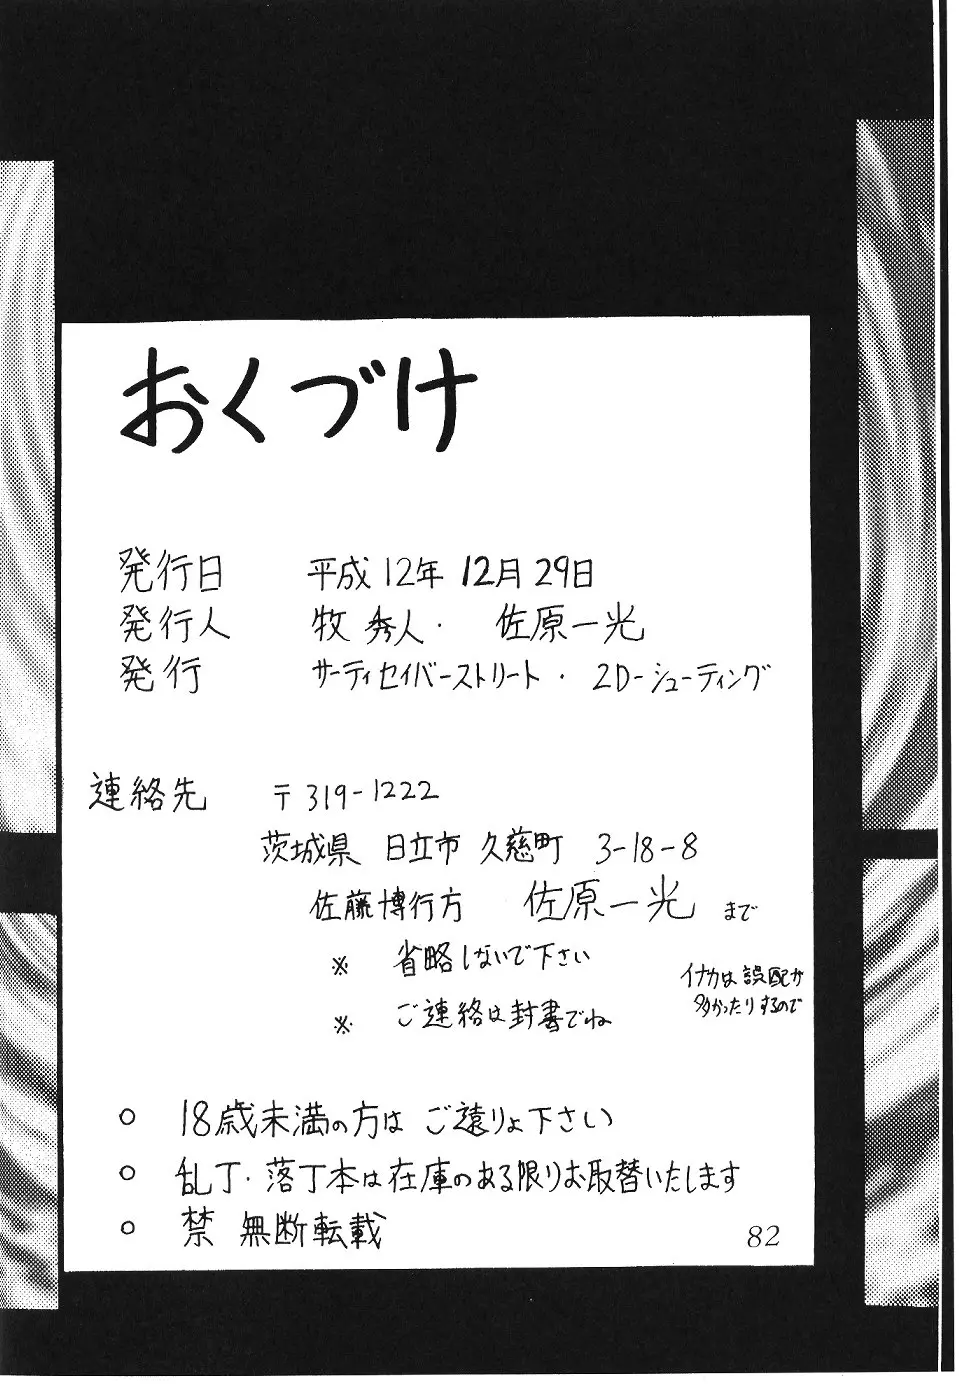 おくづけ
発行日 平成12年 12月29日
発行人 牧 秀人・ 佐原一光
発行 サーティセイバーストリート・2D-シューティング
連絡先 〒319-1222
茨城県 日立市 久慈町 3-18-8
佐藤博行方 佐原一光 まで
※ 省略しないで下さい
イナカは誤配が
多かったりするので
※ ご連絡は封書でね
○ 18歳未満の方は ご遠りょ下さい
○ 乱丁・落丁本は在庫のある限りお取替いたします
○ 禁 無断転載
82